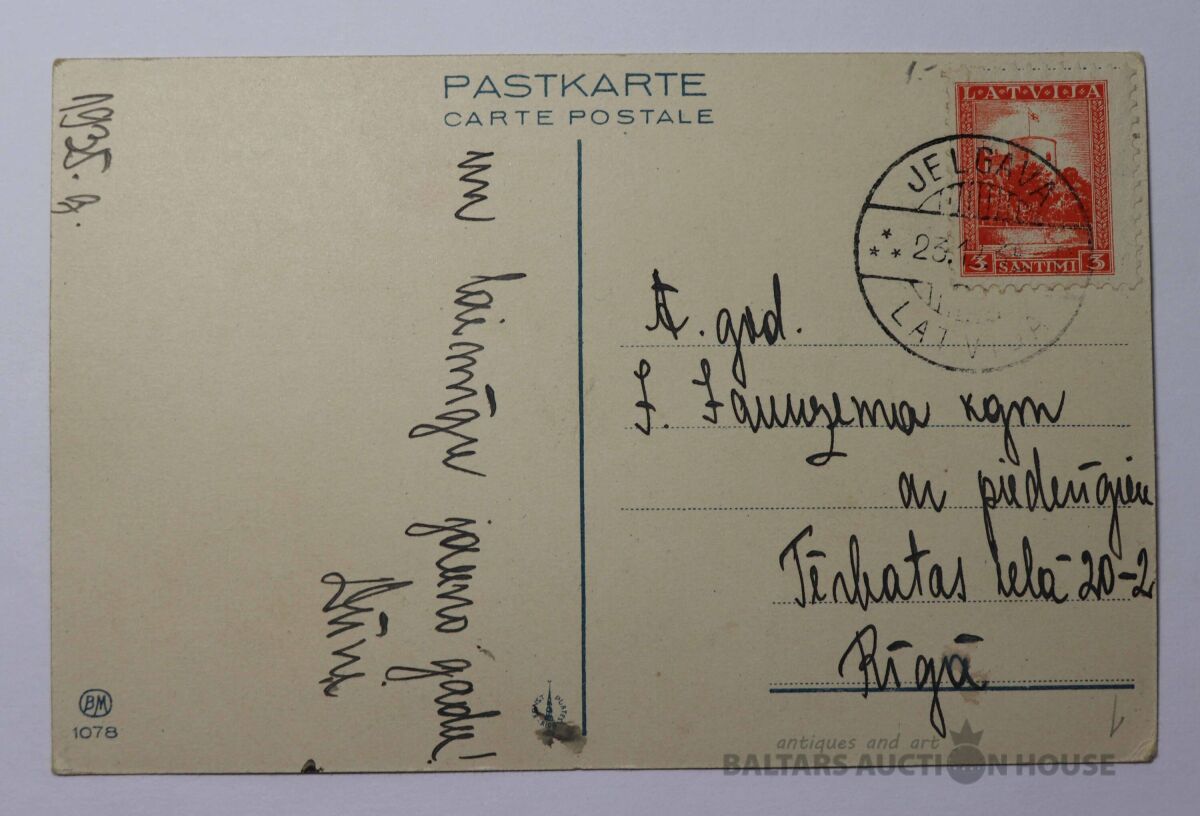 PASTKARTE
CARTE POSTALE
LATVIJA
3 SANTIMI 3
JELGAVA
23.
LATVIJA
un laimīgu jauno gadu!
A. god.
J. Jaunzema kgm
ar piederīgiem
Tērbatas ielā 20-2
Rīgā
BM
1078
antiques and art
BALTARS AUCTION HOUSE